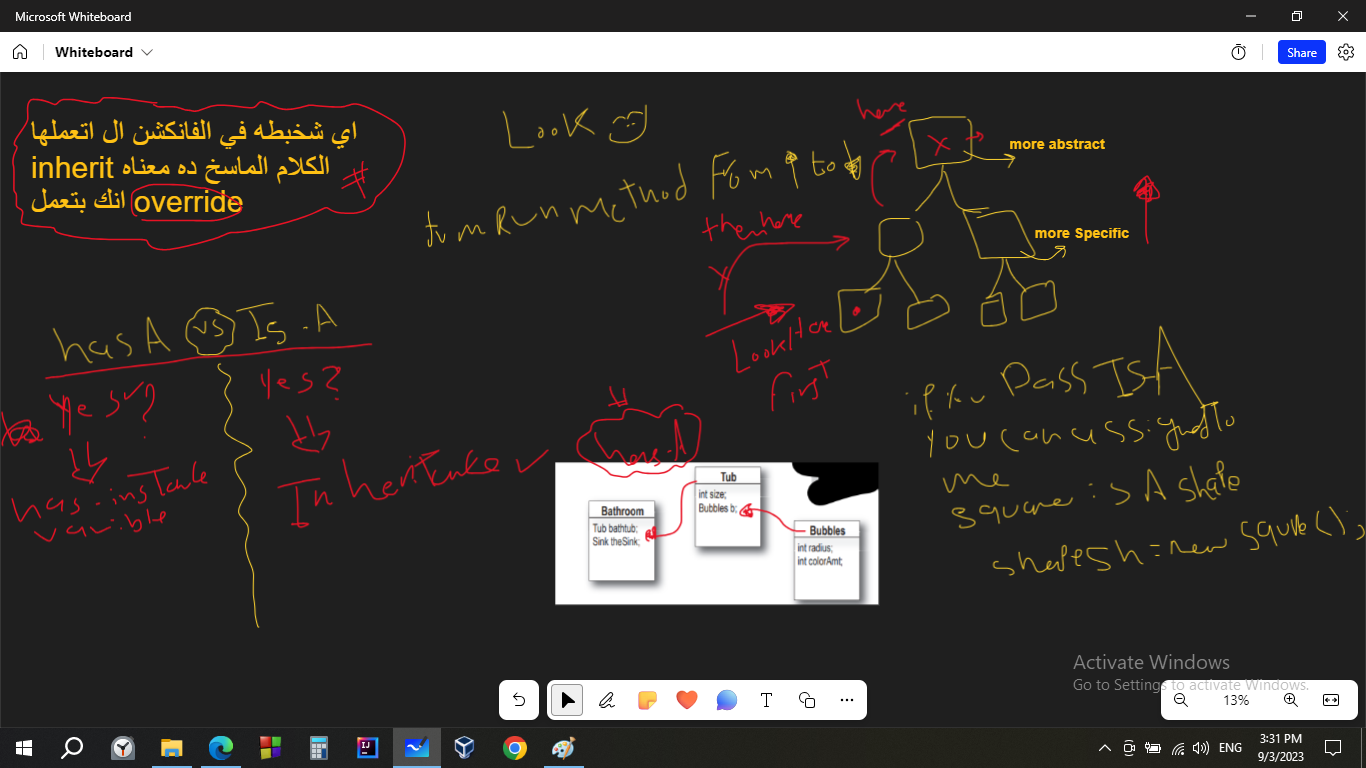 Microsoft Whiteboard
Whiteboard
Share
اي شخبطه في الفانكشن ال اتعملها
inherit الكلام الماسخ ده معناه
override انك بتعمل
Look
RUN method From to
here
then here
Look Here
first
more abstract
more Specific
has A VS Is.A
Yes?
has.instance
variable
Yes?
Inheritance
has.A
Tub
int size;
Bubbles b;
Bathroom
Tub bathtub;
Sink theSink;
Bubbles
int radius;
int colorAmt;
if you Pass IS-A
you can assigned to
me
square is A shape
shape sh = new squre();
Activate Windows
Go to Settings to activate Windows.
13%
ENG
3:31 PM
9/3/2023